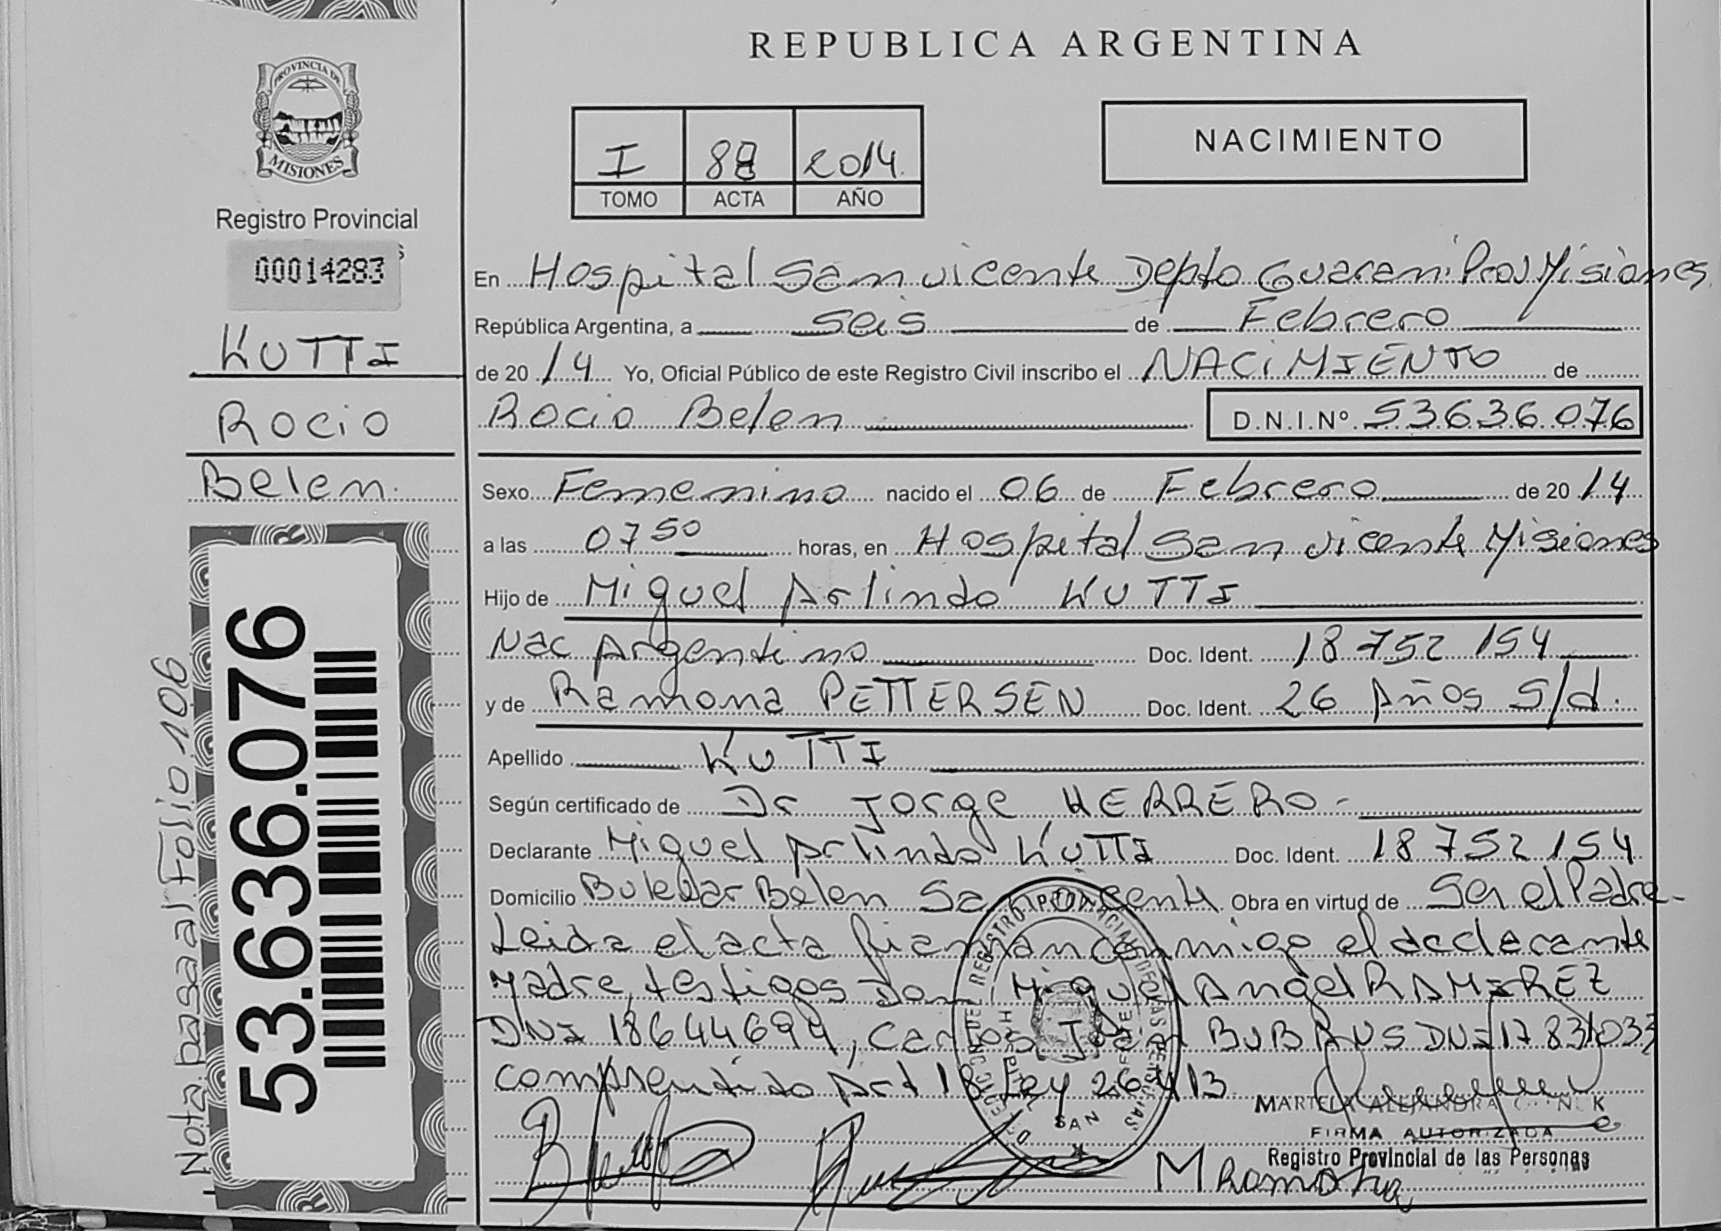 REPUBLICA ARGENTINA
PROVINCIA DE
MISIONES
Registro Provincial
00014283
KUTTI
ROCIO
Belen.
53.636.076
Nota pasa al Folio 106
I 88 2014.
TOMO ACTA AÑO
NACIMIENTO
En Hospital San vicente Depto Guarani Prov Misiones
República Argentina, a seis de Febrero
de 20 14 Yo, Oficial Público de este Registro Civil inscribo el NACIMIENTO de
ROCIO Belen D.N.I.Nº. 53636076
Sexo Femenino nacido el 06 de Febrero de 20 14
a las 07 50 horas, en Hospital San vicente Misiones
Hijo de Miguel Arlindo KUTTI
Nac Argentino Doc. Ident. 18 752 154
y de Ramona PETTERSEN Doc. Ident. 26 Años S/d.
Apellido KUTTI
Según certificado de Dr JORGE HERRERO.-
Declarante Miguel Arlindo KUTTI Doc. Ident. 18 752 154
Domicilio Buledar Belen San vicente Obra en virtud de Ser el Padre-
Leida el acta firman conmigo el declarante
Madre, testigos Don Miguel Angel RAMIREZ
DNI 18644694, Carlos BUBAUS DNI 17 831033
comprendido Art 18 Ley 26413
MARIELA ALEJANDRA
FIRMA AUTORIZADA
Registro Provincial de las Personas
M Ramona